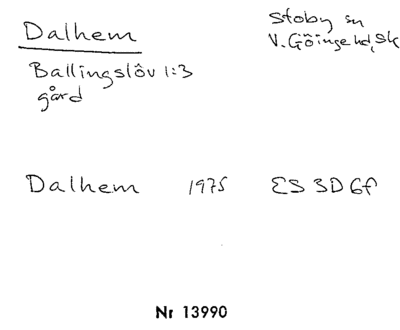 Dalhem
Stoby sn
V. Göinge hd, Sk
Ballingslöv 1:3
gård
Dalhem 1975 ES 3D 6f
Nr 13990